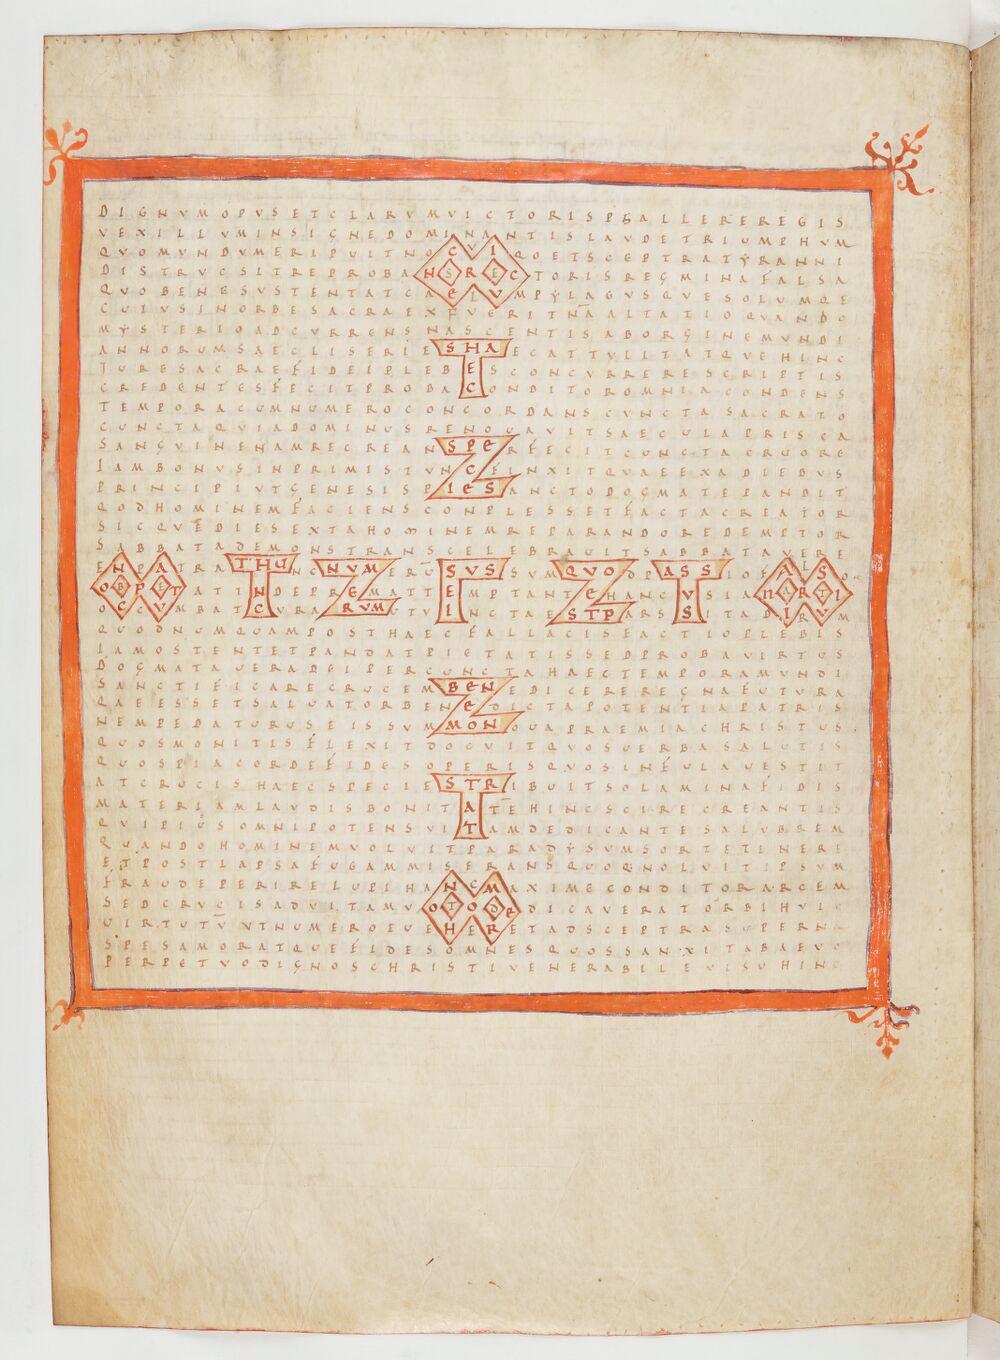 DIGNVMOPVSETCLARVMVICTORISPSALLEREREGIS
VEXILLVMINSIGNEDOMINANTISLAVDETRIVMPHVM
QVOMVNDVMERIPUITNOCVIQOETSCEPTRATYRANNI
DISTRVCSITREPROBANSRECTORISREGMINAFALSA
QVOBENESVSTENTATCAELVMPYLAGVSQVESOLVMQE
CVIVSINORBESACRAEXFVERITNAALTATIOQVANDO
MYSTERIOADCVRRENSNASCENTISABORGINEMVNDI
ANNORUMSAECLISERIESHAECATTVLITATQVEHINC
JVRESACRAEFIDEIPLEBESCONCVRRERESCRIPTIS
CREDENTESFECITPROBACONDITOROMNIACONDENS
TEMPORACVMNVMEROCONCORDANSCVNCTASACRATO
CVNCTAQVIADOMINVSRENOVAVITSAECVLAPRISCA
SANGVINENAMRECREANSPERFECITCVNCTACRVORE
IAMBONVSINPRIMISTVNCFINXITQVAEEXADIEBVS
PRINCIPIVTGENESISPIESANCTODOGMATEPANDIT
QODHOMINEMFACIENSCONPLESSETFACTACREATOR
SICQVEDIESEXTAHOMINEMREPARANDOREDEMPTOR
SABBATADEMONSTRANSCELEBRAVITSABBATAVERE
QVODNVMQVAMPOSTHAECFALLACISFACTIOPLEBIS
IAMOSTENTETPANDATPIETATISSEDPROBAVIRTVS
DOGMATAVERADEIPERCVNCTAHAECTEMPORAMVNDI
SANCTIFICARECRVCEMBENEDICEREREGNAFVTVRA
QAEESSETSALVATORBENEDICTAPOTENTIAPATRIS
NEMPEDATVRVSEISSVMMONQVAPRAEMIACHRISTVS
QVOSMONITISFLEXITDOCVITQVOSVERBASALVTIS
QVOSPIACORDEFIDESOPERISQVOSINFVLAVESTIT
ATCRVCISHAECSPECIESTRIBVITSOLAMINAFIDIS
MATERIAMLAVDISBONITATEHINCSCIRECREANTIS
QVIPIVSOMNIPOTENSVITAMDEDICANTESALVBREM
QVANDOHOMINEMVOLVITPARADYSVMSORTETENERE
ETPOSTLAPSAFVGAMMISERANSQVOQNOLVITIPSVM
FRAVDEPERIRELVPIHANCMAXIMECONDITORARCEM
SEDCRVCISADVITAMVOTODEDICAVERATORBIHVIC
VIRTVTVVTNVMEROEVEHERETADSCEPTRASVPERNA
SPESAMORATQVEFIDESOMNESQVOSSANXITABAEVO
PERPETVODIGNOSCHRISTIVENERABILEVISVHINC